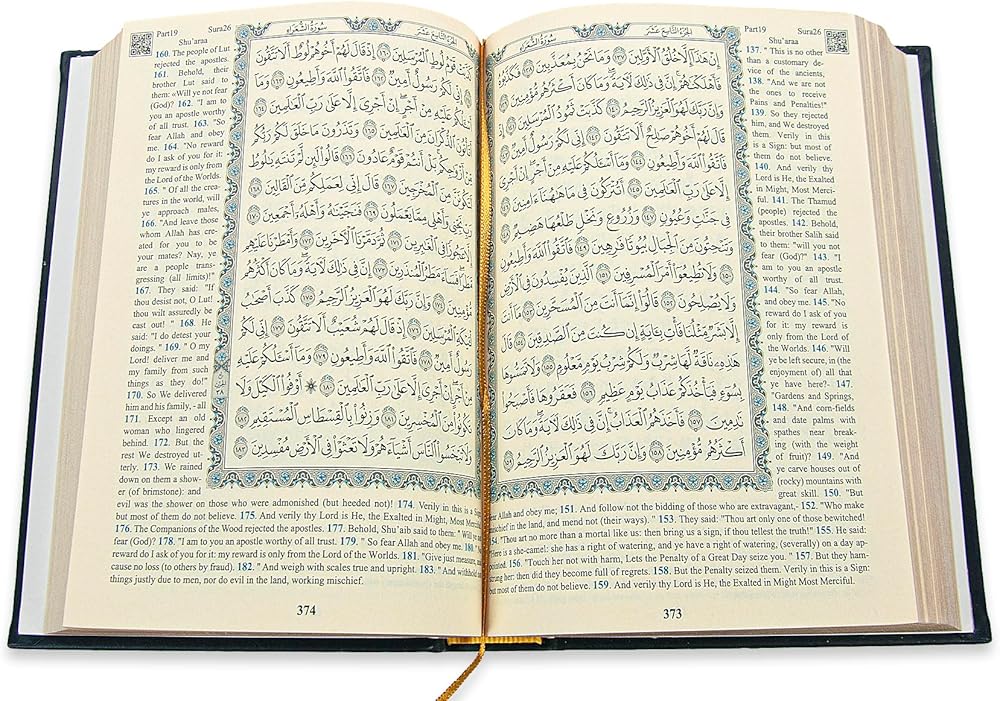 Part19 Sura26
Shu'araa
سُورَةُ الشُّعَرَاءِ
الجُزْءُ التَّاسِعَ عَشَرَ
إِنْ هَٰذَآ إِلَّا خُلُقُ ٱلْأَوَّلِينَ ١٣٧ وَمَا نَحْنُ بِمُعَذَّبِينَ ١٣٨ فَكَذَّبُوهُ
فَأَهْلَكْنَٰهُمْ إِنَّ فِي ذَٰلِكَ لَءَايَةً وَمَا كَانَ أَكْثَرُهُم مُّؤْمِنِينَ ١٣٩
وَإِنَّ رَبَّكَ لَهُوَ ٱلْعَزِيزُ ٱلرَّحِيمُ ١٤٠ كَذَّبَتْ ثَمُودُ ٱلْمُرْسَلِينَ ١٤١
إِذْ قَالَ لَهُمْ أَخُوهُمْ صَٰلِحٌ أَلَا تَتَّقُونَ ١٤٢ إِنِّي لَكُمْ رَسُولٌ أَمِينٌ ١٤٣
فَٱتَّقُوا۟ ٱللَّهَ وَأَطِيعُونِ ١٤٤ وَمَآ أَسْـَٔلُكُمْ عَلَيْهِ مِنْ أَجْرٍ إِنْ أَجْرِيَ
إِلَّا عَلَىٰ رَبِّ ٱلْعَٰلَمِينَ ١٤٥ أَتُتْرَكُونَ فِي مَا هَٰهُنَآ ءَامِنِينَ ١٤٦
فِي جَنَّٰتٍ وَعُيُونٍ ١٤٧ وَزُرُوعٍ وَنَخْلٍ طَلْعُهَا هَضِيمٌ ١٤٨
وَتَنْحِتُونَ مِنَ ٱلْجِبَالِ بُيُوتًا فَٰرِهِينَ ١٤٩ فَٱتَّقُوا۟ ٱللَّهَ وَأَطِيعُونِ
١٥٠ وَلَا تُطِيعُوٓا۟ أَمْرَ ٱلْمُسْرِفِينَ ١٥١ ٱلَّذِينَ يُفْسِدُونَ فِي ٱلْأَرْضِ
وَلَا يُصْلِحُونَ ١٥٢ قَالُوٓا۟ إِنَّمَآ أَنتَ مِنَ ٱلْمُسَحَّرِينَ ١٥٣ مَآ أَنتَ
إِلَّا بَشَرٌ مِّثْلُنَا فَأْتِ بِـَٔايَةٍ إِن كُنتَ مِنَ ٱلصَّٰدِقِينَ ١٥٤ قَالَ
هَٰذِهِۦ نَاقَةٌ لَّهَا شِرْبٌ وَلَكُمْ شِرْبُ يَوْمٍ مَّعْلُومٍ ١٥٥ وَلَا تَمَسُّوهَا
بِسُوٓءٍ فَيَأْخُذَكُمْ عَذَابُ يَوْمٍ عَظِيمٍ ١٥٦ فَعَقَرُوهَا فَأَصْبَحُوا۟
نَٰدِمِينَ ١٥٧ فَأَخَذَهُمُ ٱلْعَذَابُ إِنَّ فِي ذَٰلِكَ لَءَايَةً وَمَا كَانَ
أَكْثَرُهُم مُّؤْمِنِينَ ١٥٨ وَإِنَّ رَبَّكَ لَهُوَ ٱلْعَزِيزُ ٱلرَّحِيمُ ١٥٩
137. " This is no other
than a customary de-
vice of the ancients,
138. "And we are not
the ones to receive
Pains and Penalties!"
139. So they rejected
him, and We destroyed
them. Verily in this
is a Sign: but most of
them do not believe.
140. And verily thy
Lord is He, the Exalted
in Might, Most Merci-
ful. 141. The Thamud
(people) rejected the
apostles. 142. Behold,
their brother Salih said
to them: "will you not
fear (God)? 143. "I
am to you an apostle
worthy of all trust.
144. "So fear Allah,
and obey me. 145. "No
reward do I ask of you
for it: my reward is
only from the Lord of
the Worlds. 146. "Will
ye be left secure, in (the
enjoyment of) all that
ye have here?- 147.
"Gardens and Springs,
148. "And corn-fields
and date palms with
spathes near break-
ing (with the weight
of fruit)? 149. "And
ye carve houses out of
(rocky) mountains with
great skill. 150. "But
fear Allah and obey me; 151. And follow not the bidding of those who are extravagant,- 152. "Who make
mischief in the land, and mend not (their ways). " 153. They said: "Thou art only one of those bewitched!
154. "Thou art no more than a mortal like us: then bring us a sign, if thou tellest the truth!" 155. He said:
"Here is a she-camel: she has a right of watering, and ye have a right of watering, (severally) on a day ap-
pointed. 156. "Touch her not with harm, Lets the Penalty of a Great Day seize you." 157. But they ham-
strung her: then did they become full of regrets. 158. But the Penalty seized them. Verily in this is a Sign:
but most of them do not believe. 159. And verily thy Lord is He, the Exalted in Might Most Merciful.
373
Part19 Sura26
Shu'araa
الجُزْءُ التَّاسِعَ عَشَرَ
سُورَةُ الشُّعَرَاءِ
كَذَّبَتْ قَوْمُ لُوطٍ ٱلْمُرْسَلِينَ ١٦٠ إِذْ قَالَ لَهُمْ أَخُوهُمْ لُوطٌ أَلَا تَتَّقُونَ
١٦١ إِنِّي لَكُمْ رَسُولٌ أَمِينٌ ١٦٢ فَٱتَّقُوا۟ ٱللَّهَ وَأَطِيعُونِ ١٦٣ وَمَآ
أَسْـَٔلُكُمْ عَلَيْهِ مِنْ أَجْرٍ إِنْ أَجْرِيَ إِلَّا عَلَىٰ رَبِّ ٱلْعَٰلَمِينَ ١٦٤
أَتَأْتُونَ ٱلذُّكْرَانَ مِنَ ٱلْعَٰلَمِينَ ١٦٥ وَتَذَرُونَ مَا خَلَقَ لَكُمْ رَبُّكُم
مِّنْ أَزْوَٰجِكُم بَلْ أَنتُمْ قَوْمٌ عَادُونَ ١٦٦ قَالُوا۟ لَئِن لَّمْ تَنتَهِ يَٰلُوطُ
لَتَكُونَنَّ مِنَ ٱلْمُخْرَجِينَ ١٦٧ قَالَ إِنِّي لِعَمَلِكُم مِّنَ ٱلْقَالِينَ ١٦٨
رَبِّ نَجِّنِي وَأَهْلِي مِمَّا يَعْمَلُونَ ١٦٩ فَنَجَّيْنَٰهُ وَأَهْلَهُۥٓ أَجْمَعِينَ ١٧٠
إِلَّا عَجُوزًا فِي ٱلْغَٰبِرِينَ ١٧١ ثُمَّ دَمَّرْنَا ٱلْءَاخَرِينَ ١٧٢ وَأَمْطَرْنَا عَلَيْهِم
مَّطَرًا فَسَآءَ مَطَرُ ٱلْمُنذَرِينَ ١٧٣ إِنَّ فِي ذَٰلِكَ لَءَايَةً وَمَا كَانَ أَكْثَرُهُم
مُّؤْمِنِينَ ١٧٤ وَإِنَّ رَبَّكَ لَهُوَ ٱلْعَزِيزُ ٱلرَّحِيمُ ١٧٥ كَذَّبَ أَصْحَٰبُ
لْـَٔيْكَةِ ٱلْمُرْسَلِينَ ١٧٦ إِذْ قَالَ لَهُمْ شُعَيْبٌ أَلَا تَتَّقُونَ ١٧٧ إِنِّي لَكُمْ
رَسُولٌ أَمِينٌ ١٧٨ فَٱتَّقُوا۟ ٱللَّهَ وَأَطِيعُونِ ١٧٩ وَمَآ أَسْـَٔلُكُمْ عَلَيْهِ
مِنْ أَجْرٍ إِنْ أَجْرِيَ إِلَّا عَلَىٰ رَبِّ ٱلْعَٰلَمِينَ ١٨٠ ۞ أَوْفُوا۟ ٱلْكَيْلَ وَلَا
تَكُونُوا۟ مِنَ ٱلْمُخْسِرِينَ ١٨١ وَزِنُوا۟ بِٱلْقِسْطَاسِ ٱلْمُسْتَقِيمِ ١٨٢
وَلَا تَبْخَسُوا۟ ٱلنَّاسَ أَشْيَآءَهُمْ وَلَا تَعْثَوْا۟ فِي ٱلْأَرْضِ مُفْسِدِينَ ١٨٣
160. The people of Lut
rejected the apostles.
161. Behold, their
brother Lut said to
them: «Will ye not fear
(God)? 162. "I am to
you an apostle worthy
of all trust. 163. "So
fear Allah and obey
me. 164. "No reward
do I ask of you for it:
my reward is only from
the Lord of the Worlds.
165. " Of all the crea-
tures in the world, will
ye approach males,
166. "And leave those
whom Allah has cre-
ated for you to be
your mates? Nay, ye
are a people trans-
gressing (all limits)!"
167. They said: "If
thou desist not, O Lut!
thou wilt assuredly be
cast out! " 168. He
said: "I do detest your
doings. " 169. " O my
Lord! deliver me and
my family from such
things as they do!"
170. So We delivered
him and his family, - all
171. Except an old
woman who lingered
behind. 172. But the
rest We destroyed ut-
terly. 173. We rained
down on them a show-
er (of brimstone): and
evil was the shower on those who were admonished (but heeded not)! 174. Verily in this is a Sign:
but most of them do not believe. 175. And verily thy Lord is He, the Exalted in Might, Most Merciful.
176. The Companions of the Wood rejected the apostles. 177. Behold, Shu'aib said to them: " Will ye not
fear (God)? 178. "I am to you an apostle worthy of all trust. 179. "So fear Allah and obey me. 180. "No
reward do I ask of you for it: my reward is only from the Lord of the Worlds. 181. "Give just measure, and
cause no loss (to others by fraud). 182. " And weigh with scales true and upright. 183. "And withhold not
things justly due to men, nor do evil in the land, working mischief.
374